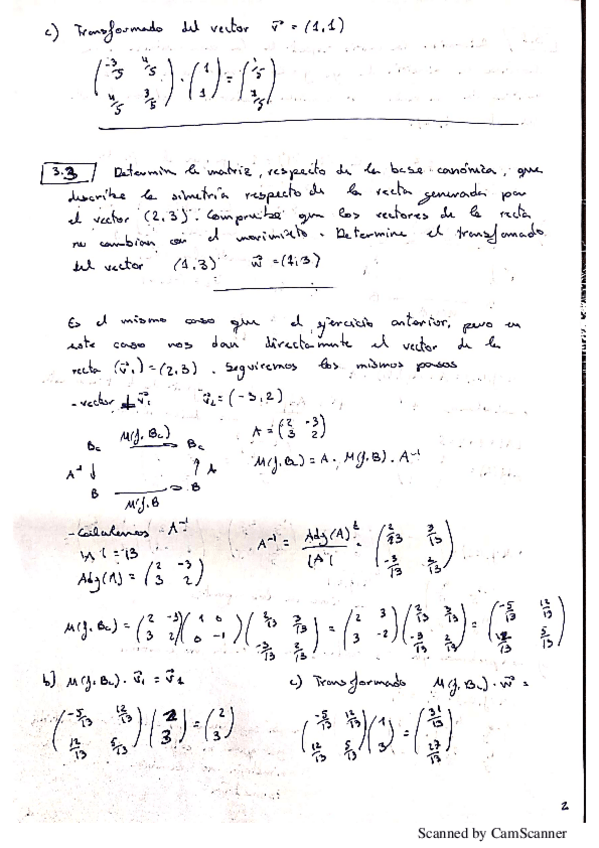 c) Transformado del vector v⃗ = (1,1)
(-3/5 4/5; 4/5 3/5) · (1; 1) = (1/5; 7/5)
3.3 Determin la matriz, respecto de la base canóniza, que
describe la simetría respecto de la recta generada por
el vector (2,3). Compruebe que los vectores de la recta
no cambian con el movimiento. Determine el transformado
del vector (1,3) w⃗ = (1,3)
Es el mismo caso que el ejercicio anterior, pero en
este caso nos dan directamente el vector de la
recta (v⃗₁) = (2,3). Seguiremos los mismos pasos
- vector ⊥ v⃗₁ v⃗₂ = (-3,2)
Bc M(f,Bc) Bc A = (2 -3; 3 2)
A⁻¹ ↓ ↑ A M(f,Bc) = A · M(f,B) · A⁻¹
B B
M(f,B
- Calculamos A⁻¹
|A| = 13 A⁻¹ = Adj(A)ᵗ / |A| = (2/13 3/13; -3/13 2/13)
Adj(A) = (2 -3; 3 2)
M(f,Bc) = (2 -3; 3 2)(1 0; 0 -1)(2/13 3/13; -3/13 2/13) = (2 3; 3 -2)(2/13 3/13; -3/13 2/13) = (-5/13 12/13; 12/13 5/13)
b) M(f,Bc) · v⃗₁ = v⃗₁ c) Transformado M(f,Bc) · w⃗ =
(-5/13 12/13; 12/13 5/13)(2; 3) = (2; 3) (-5/13 12/13; 12/13 5/13)(1; 3) = (31/13; 27/13)
2
Scanned by CamScanner